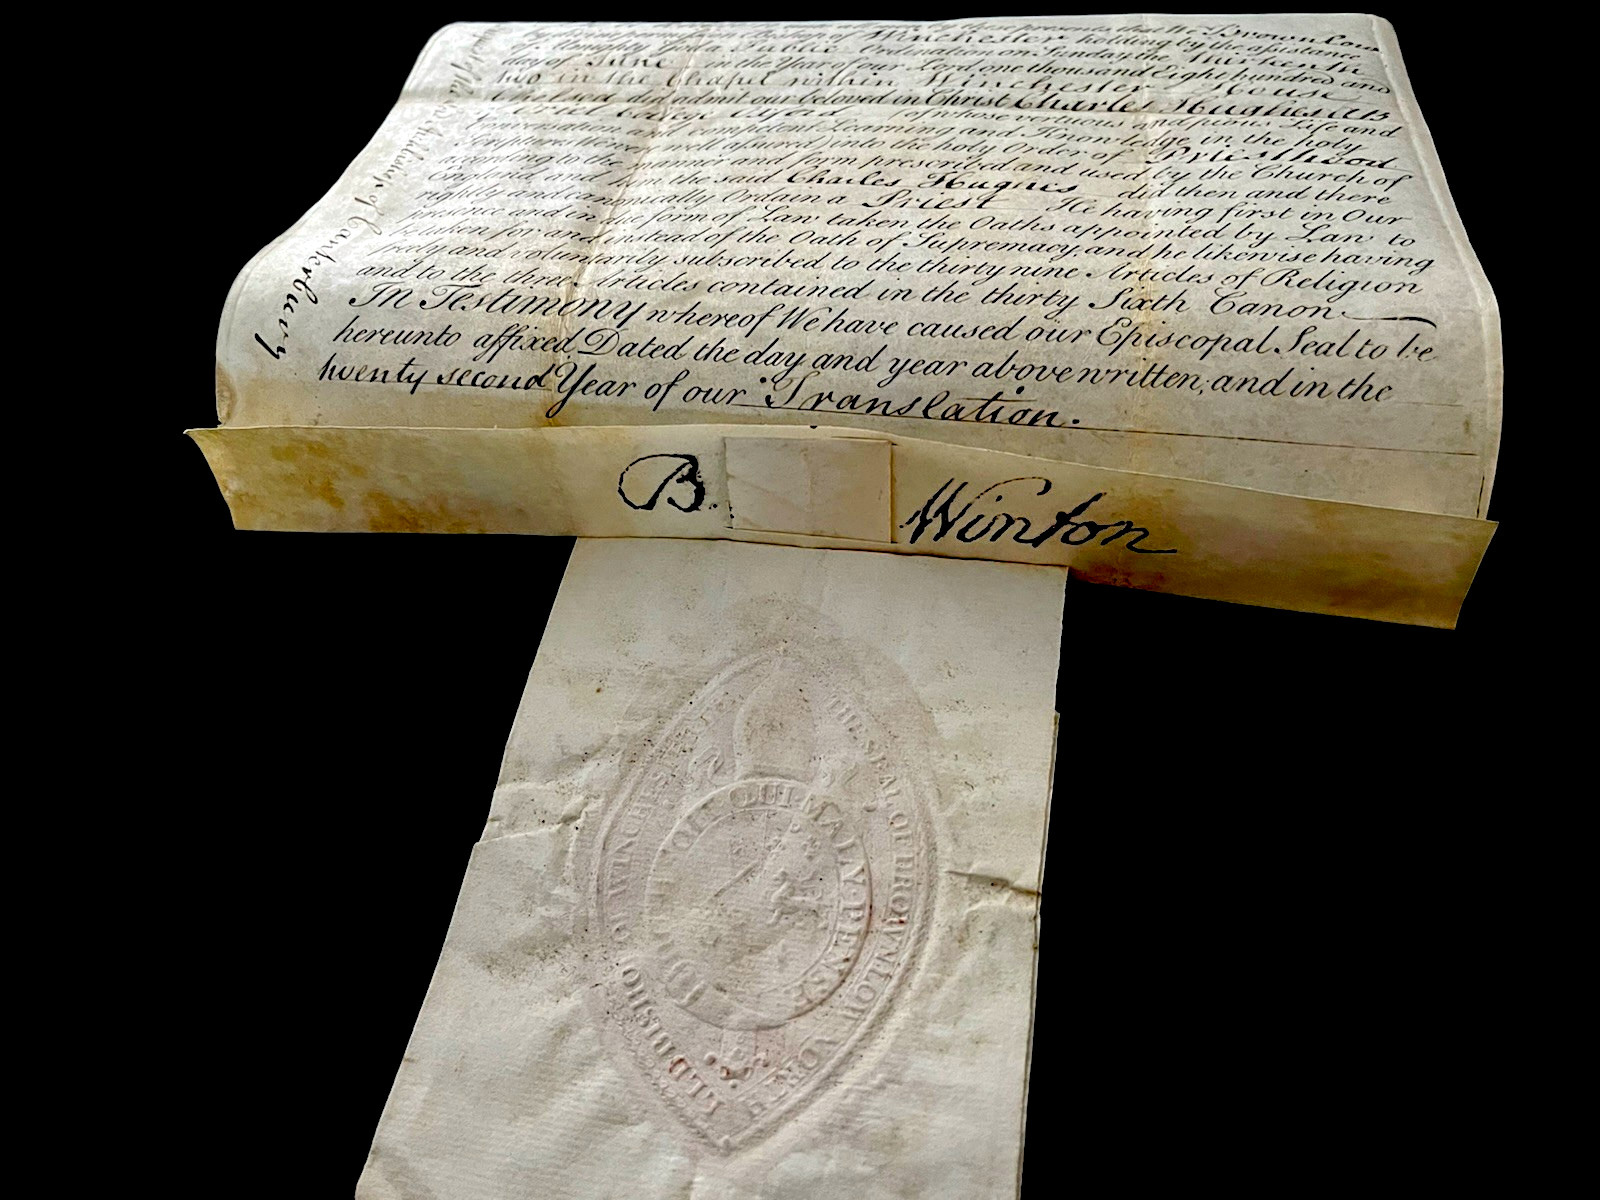 by these presents that We Brownlow
by divine permission Bishop of Winchester holding by the assistance
of Almighty God a Public Ordination on Sunday the
day of June in the Year of our Lord one thousand Eight hundred and
two in the Chapel within Winchester House
Chelsea did admit our beloved in Christ Charles Hughes AB
College Oxford of whose vertuous and pious Life and
Conversation and competent Learning and Knowledge in the holy
Scripture (we were well assured) into the holy Order of Priesthood
according to the manner and form prescribed and used by the Church of
England and him the said Charles Hughes did then and there
rightly and canonically Ordain a Priest He having first in Our
presence and in the form of Law taken the Oaths appointed by Law to
be taken for and instead of the Oath of Supremacy, and he likewise having
freely and voluntarily subscribed to the thirty nine Articles of Religion
and to the three Articles contained in the thirty Sixth Canon
In Testimony whereof We have caused our Episcopal Seal to be
hereunto affixed Dated the day and year above written, and in the
twenty second Year of our Translation.
of Canterbury
B. Winton
THE SEAL OF BROWNLOW NORTH LLD BISHOP OF WINCHESTER
QUI MALY PENSE